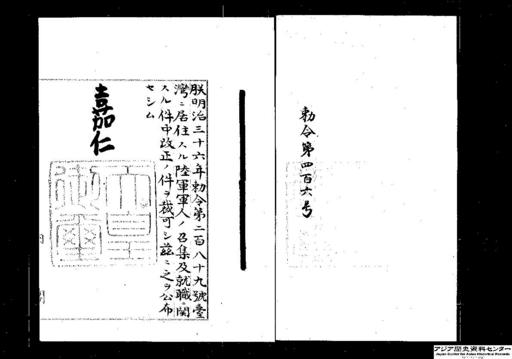 勅令第四百六号
朕明治三十六年勅令第二百八十九號臺
灣ニ居住スル陸軍軍人ノ召集及就職ニ関
スル件中改正ノ件ヲ裁可シ茲ニ之ヲ公布
セシム
嘉仁
天皇
御璽
内閣
アジア歴史資料センター
Japan Center for Asian Historical Records